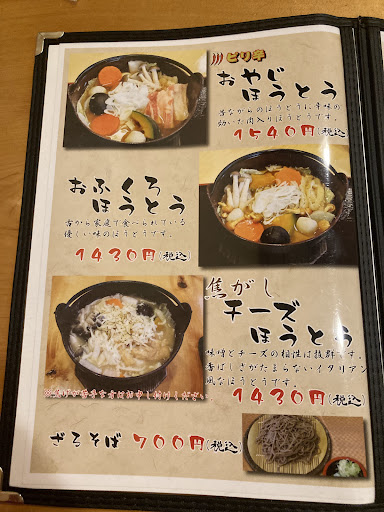 ピリ辛
おやじ
ほうとう
昔ながらのほうとうに辛味の
効いた肉入りほうとうです。
1540円(税込
おふくろ
ほうとう
昔から家庭で食べられている
優しい味のほうとうです。
1430円(税込)
焦がし
チーズ
ほうとう
味噌とチーズの相性は抜群です。
香ばしさがたまらないイタリアン
風なほうとうです。
1430円(税込)
ざるそば 700円(税込)